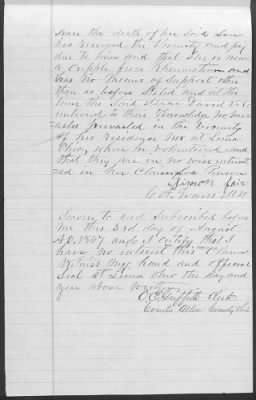 Since the death of her Said Son
has received the Bounty and pay
due to him and that She is now
a Cripple from Rheumatism and
has No Means of Support other
than as before Stated and at the
time the Said David
entered to there Knowledge no
prevailed in the Vicinity
of his residence Nor at Lima
Ohio, where he volunteered and
that they are in no wise interest
=ed in her Claim for Pension
Simon Fair
Sworn to and Subscribed before
me this 3rd day of August
A.D. 1867 and I Certify that I
have no interest this Claim
Witness My hand and official
Seal at Lima Ohio the day and
year above written
O E Griffith Clerk
Allen County Ohio